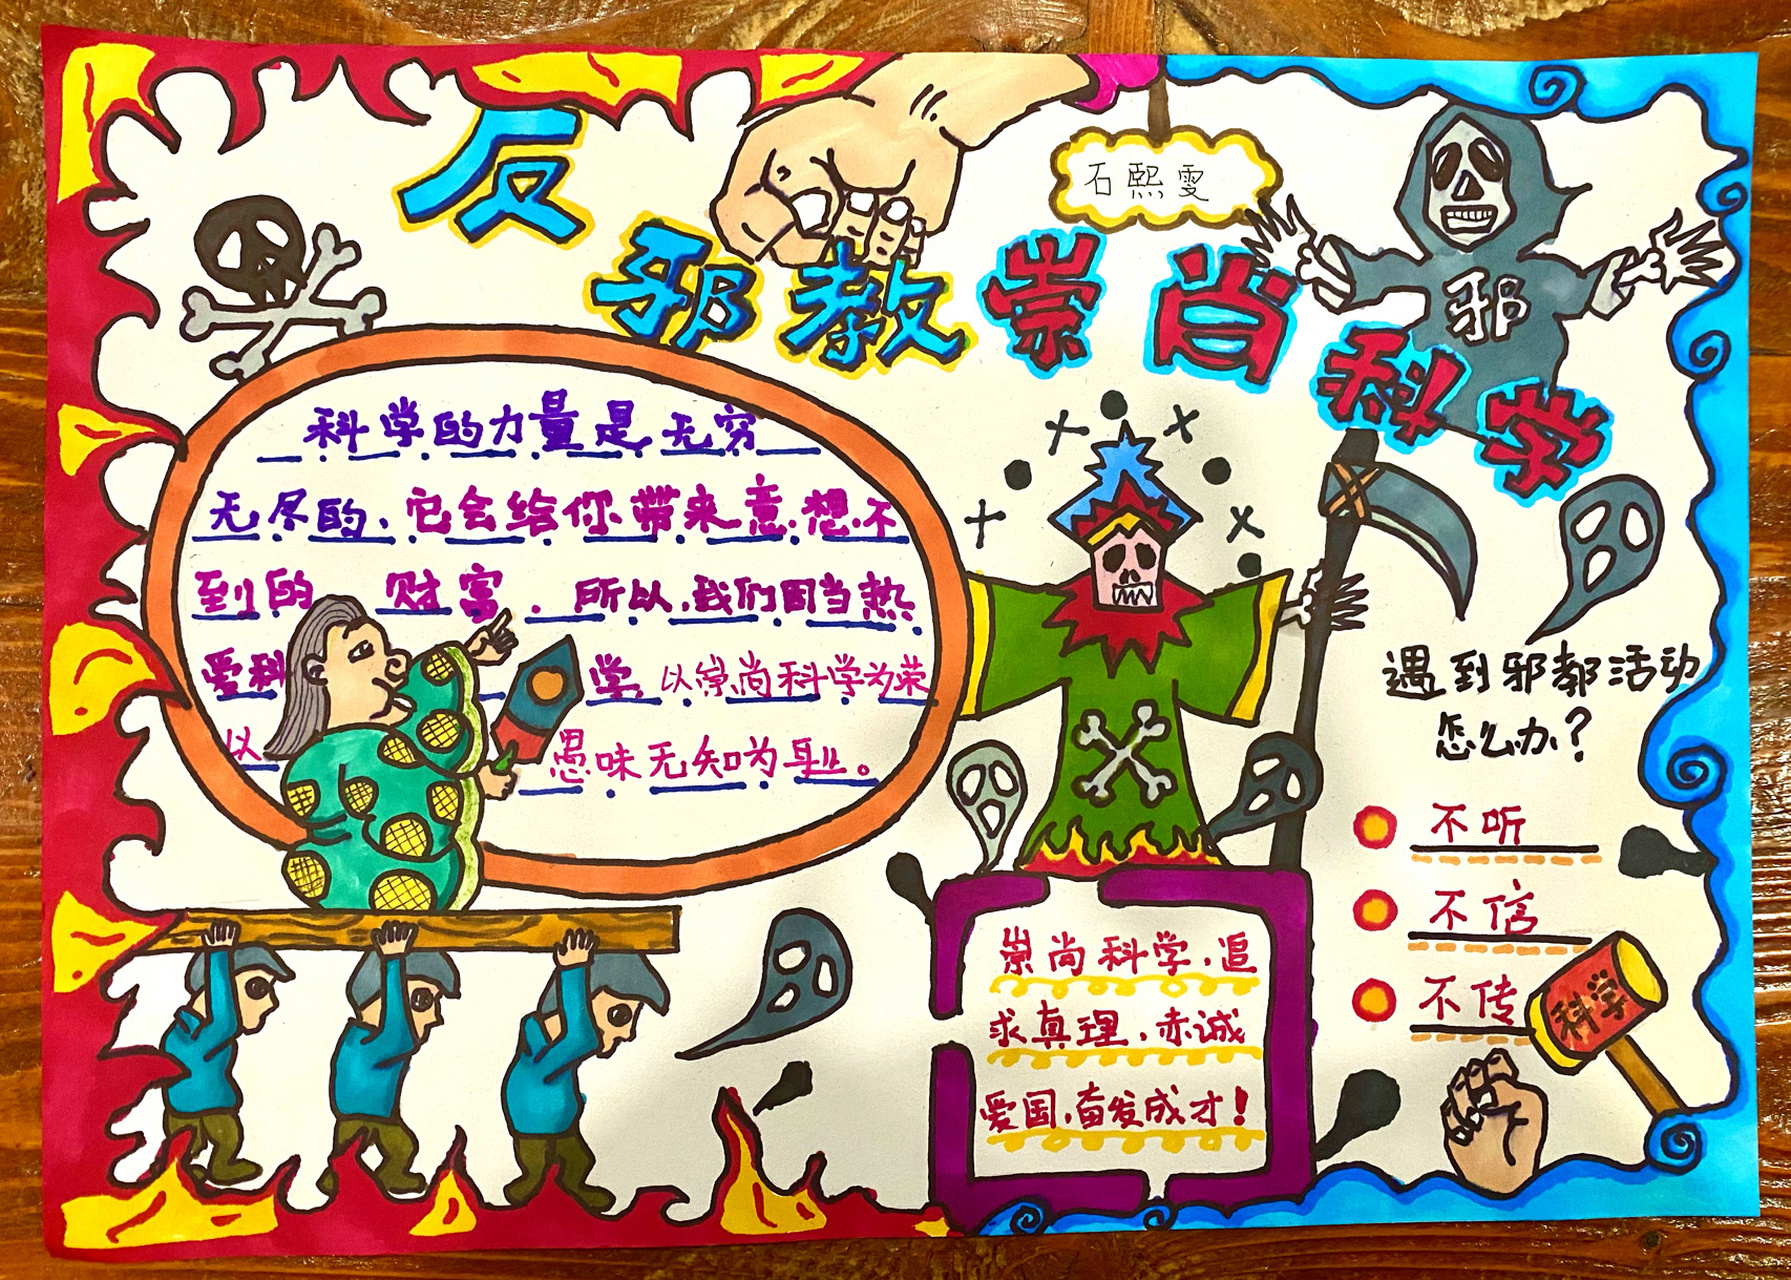 反邪教崇尚科学
石熙雯
邪
科学的力量是无穷
无尽的、它会给你带来意想不
到的 财富、所以,我们因当热
爱科 学,以崇尚科学为荣
以 愚味无知为耻。
遇到邪教活动
怎么办?
不听
不信
不传
科学
崇尚科学,追
求真理,赤诚
爱国,奋发成才!